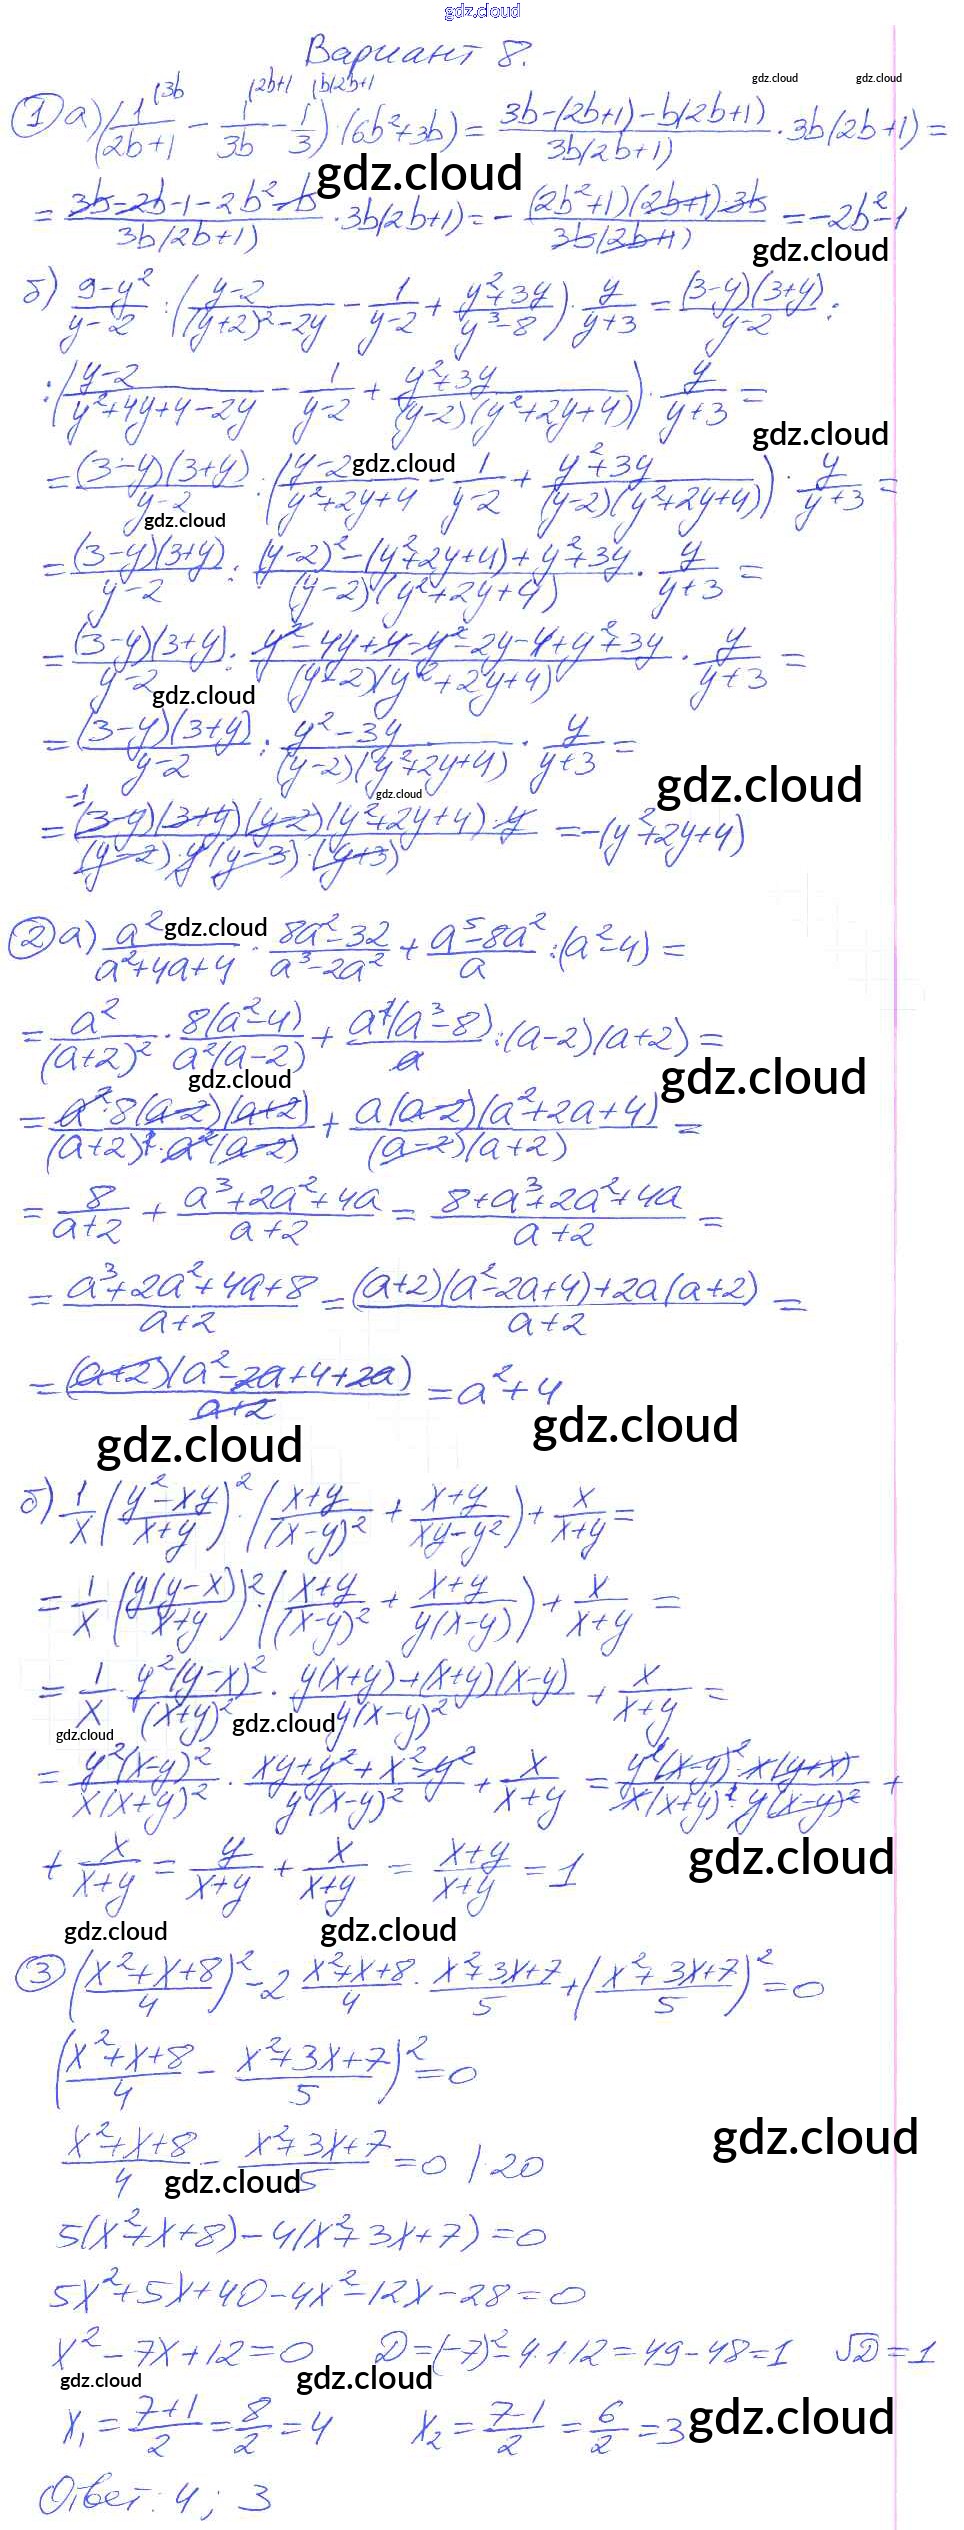 gdz.cloud
Вариант 8.
gdz.cloud gdz.cloud
(3b (2b+1 (b(2b+1
① а) (1/(2b+1) − 1/3b − 1/3)·(6b²+3b) = (3b−(2b+1)−b(2b+1))/(3b(2b+1)) · 3b(2b+1) =
gdz.cloud
= (3b−2b−1−2b²−b)/(3b(2b+1)) · 3b(2b+1) = − ((2b²+1)(2b+1)·3b)/(3b(2b+1)) = −2b²−1
gdz.cloud
б) (9−y²)/(y−2) : ((y−2)/((y+2)²−2y) − 1/(y−2) + (y²+3y)/(y³−8)) · y/(y+3) = ((3−y)(3+y))/(y−2) :
: ((y−2)/(y²+4y+4−2y) − 1/(y−2) + (y²+3y)/((y−2)(y²+2y+4))) · y/(y+3) =
gdz.cloud
= ((3−y)(3+y))/(y−2) : ((y−2)/(y²+2y+4) − 1/(y−2) + (y²+3y)/((y−2)(y²+2y+4))) · y/(y+3) =
gdz.cloud
gdz.cloud
= ((3−y)(3+y))/(y−2) : ((y−2)²−(y²+2y+4)+y²+3y)/((y−2)(y²+2y+4)) · y/(y+3) =
= ((3−y)(3+y))/(y−2) : (y²−4y+4−y²−2y−4+y²+3y)/((y−2)(y²+2y+4)) · y/(y+3) =
gdz.cloud
= ((3−y)(3+y))/(y−2) : (y²−3y)/((y−2)(y²+2y+4)) · y/(y+3) =
gdz.cloud
gdz.cloud
−1
= ((3−y)(3+y)(y−2)(y²+2y+4)·y)/((y−2)·y(y−3)·(y+3)) = −(y²+2y+4)
② а) a²/(a²+4a+4) · (8a²−32)/(a³−2a²) + (a⁵−8a²)/a : (a²−4) =
gdz.cloud
= a²/(a+2)² · (8(a²−4))/(a²(a−2)) + (a²(a³−8))/a : (a−2)(a+2) =
gdz.cloud
gdz.cloud
= (a²·8(a−2)(a+2))/((a+2)²·a²(a−2)) + (a(a−2)(a²+2a+4))/((a−2)(a+2)) =
= 8/(a+2) + (a³+2a²+4a)/(a+2) = (8+a³+2a²+4a)/(a+2) =
= (a³+2a²+4a+8)/(a+2) = ((a+2)(a²−2a+4)+2a(a+2))/(a+2) =
= ((a+2)(a²−2a+4+2a))/(a+2) = a²+4
gdz.cloud
gdz.cloud
б) 1/x ((y²−xy)/(x+y))² · ((x+y)/(x−y)² + (x+y)/(xy−y²)) + x/(x+y) =
= 1/x ((y(y−x))/(x+y))² · ((x+y)/(x−y)² + (x+y)/(y(x−y))) + x/(x+y) =
= 1/x · (y²(y−x)²)/(x+y)² · (y(x+y)+(x+y)(x−y))/(y(x−y)²) + x/(x+y) =
gdz.cloud
gdz.cloud
= (y²(x−y)²)/(x(x+y)²) · (xy+y²+x²−y²)/(y(x−y)²) + x/(x+y) = (y²(x−y)²·x(y+x))/(x(x+y)²·y(x−y)²) +
+ x/(x+y) = y/(x+y) + x/(x+y) = (x+y)/(x+y) = 1
gdz.cloud
gdz.cloud gdz.cloud
③ ((x²+x+8)/4)² − 2 (x²+x+8)/4 · (x²+3x+7)/5 + ((x²+3x+7)/5)² = 0
((x²+x+8)/4 − (x²+3x+7)/5)² = 0
(x²+x+8)/4 − (x²+3x+7)/5 = 0 |·20
gdz.cloud
gdz.cloud
5(x²+x+8)−4(x²+3x+7)=0
5x²+5x+40−4x²−12x−28=0
x²−7x+12=0 D=(−7)²−4·1·12=49−48=1 √D=1
gdz.cloud gdz.cloud
x₁ = (7+1)/2 = 8/2 = 4 x₂ = (7−1)/2 = 6/2 = 3
gdz.cloud
Ответ: 4; 3